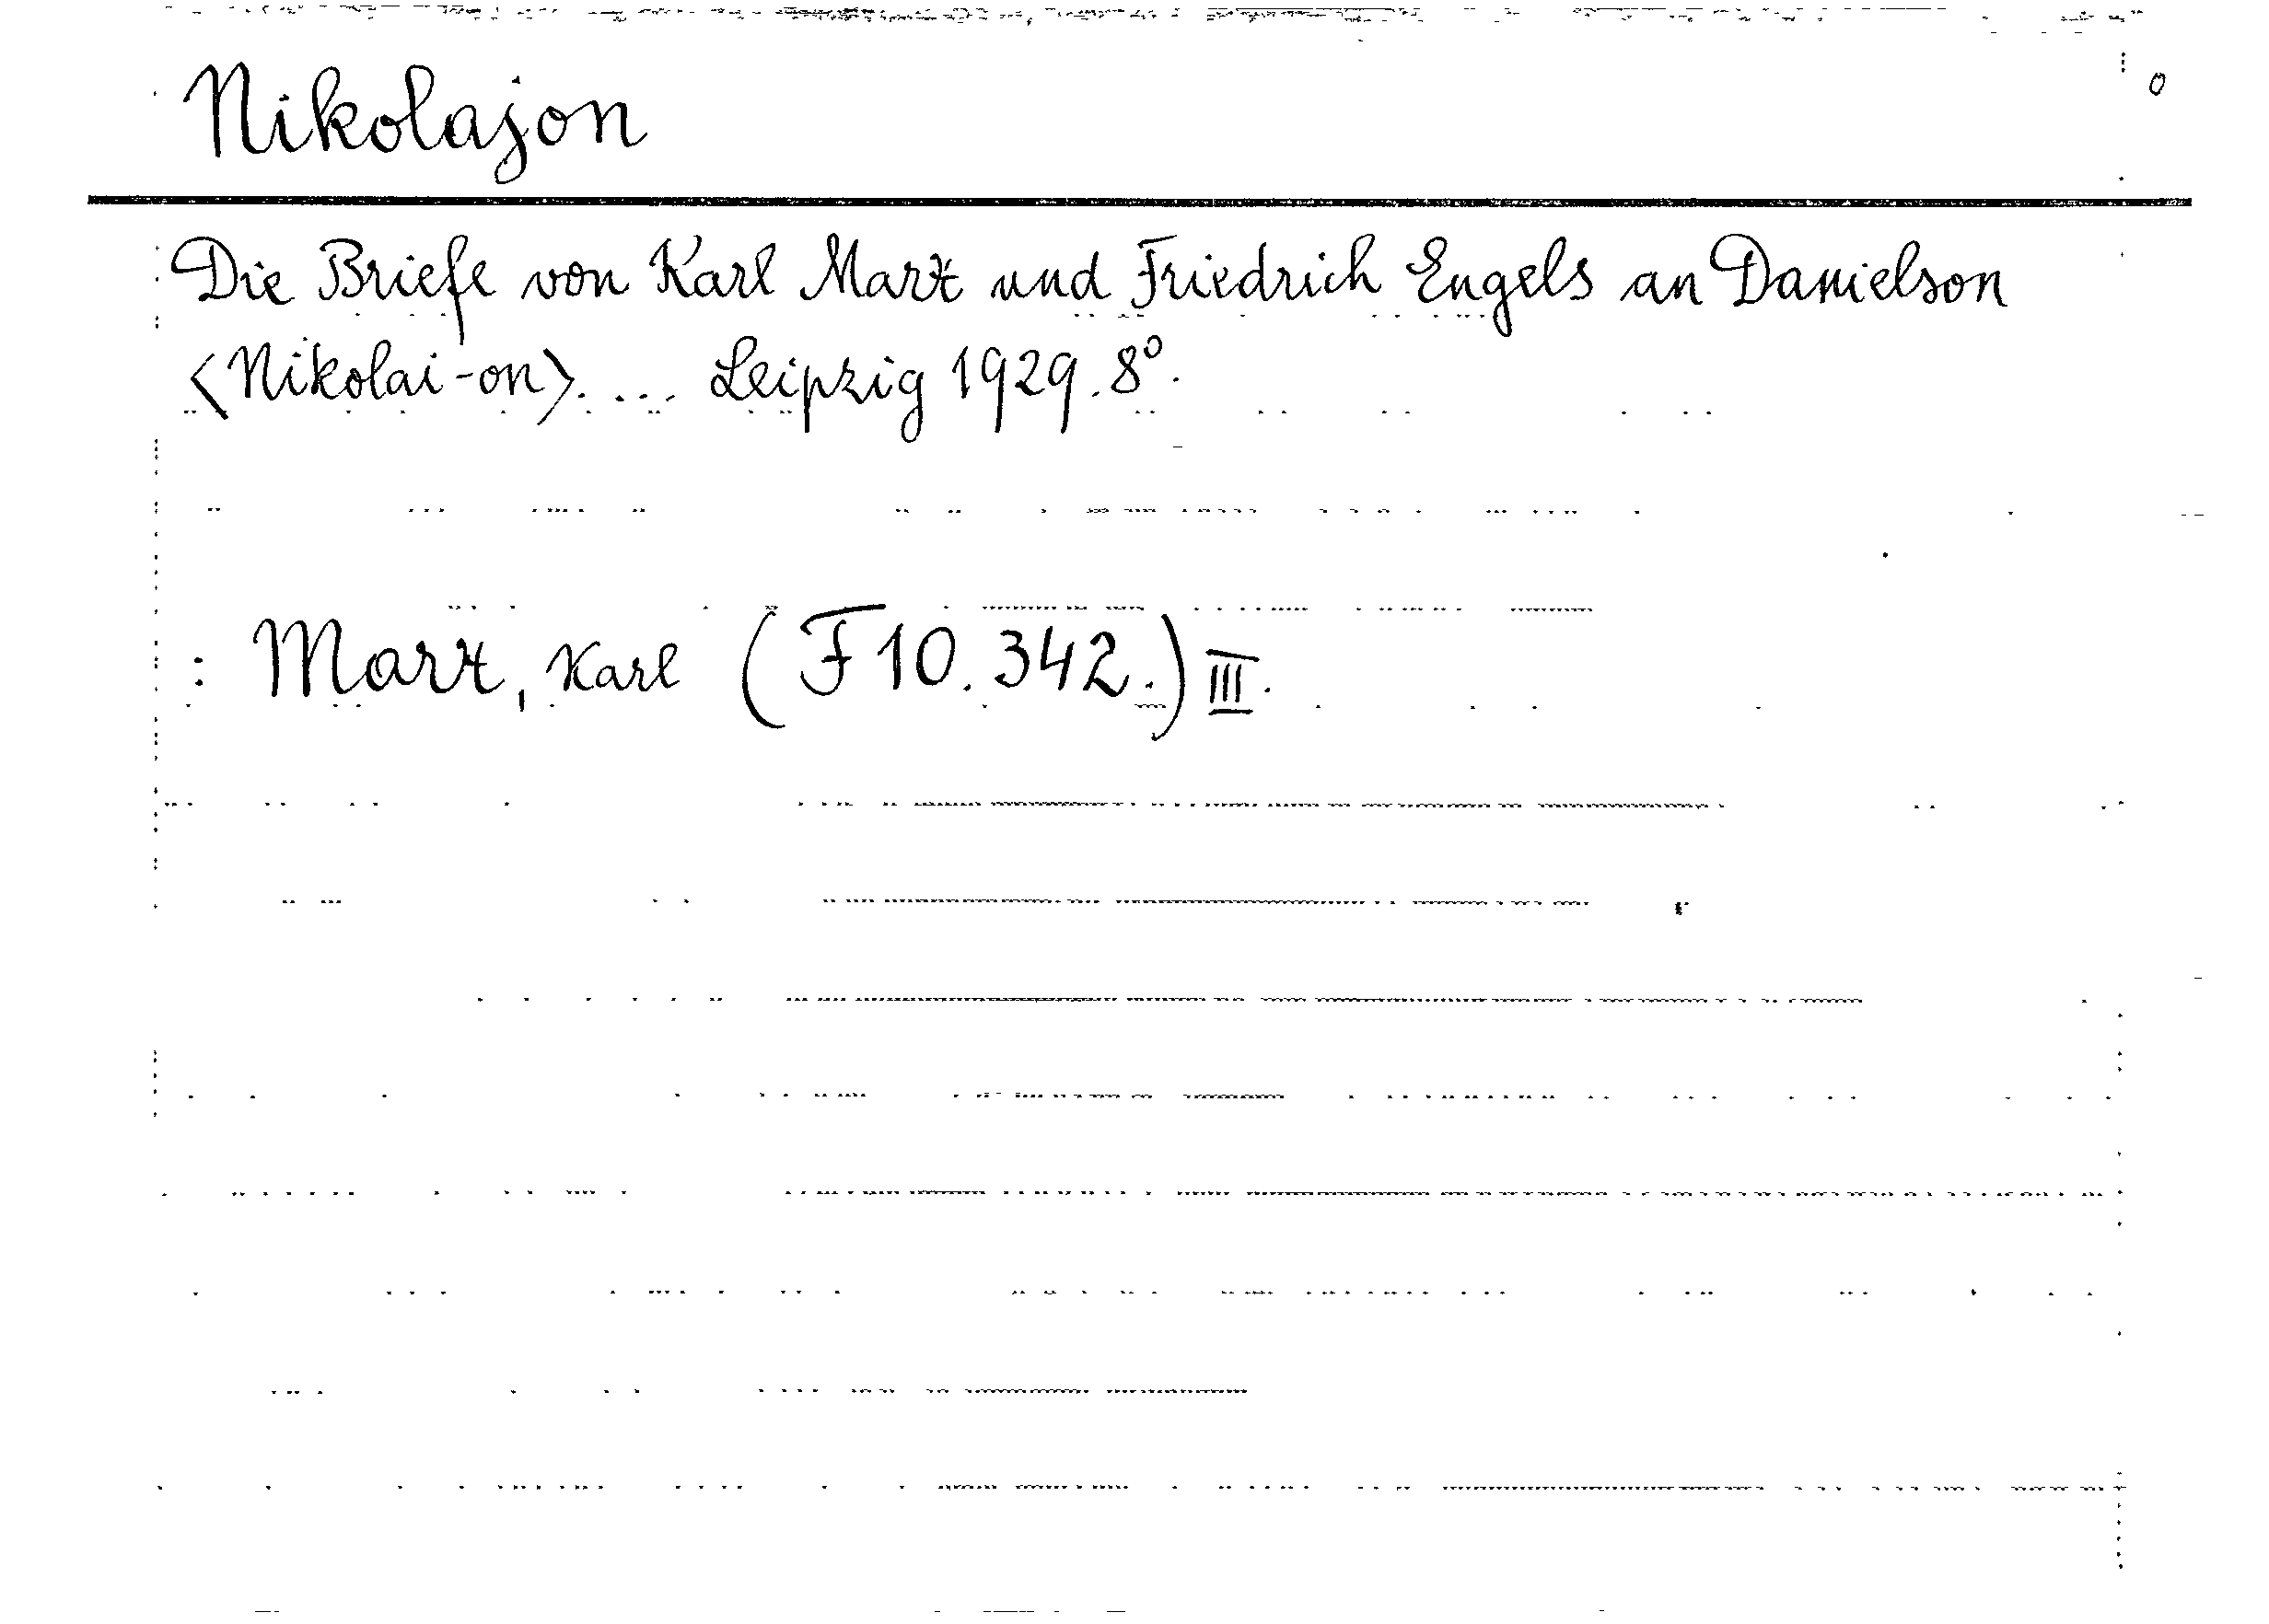 Nikolajon
o
Die Briefe von Karl Marx und Friedrich Engels an Danielson
<Nikolai-on>. ... Leipzig 1929. 8°.
: Marx, Karl (F 10. 342.) III.